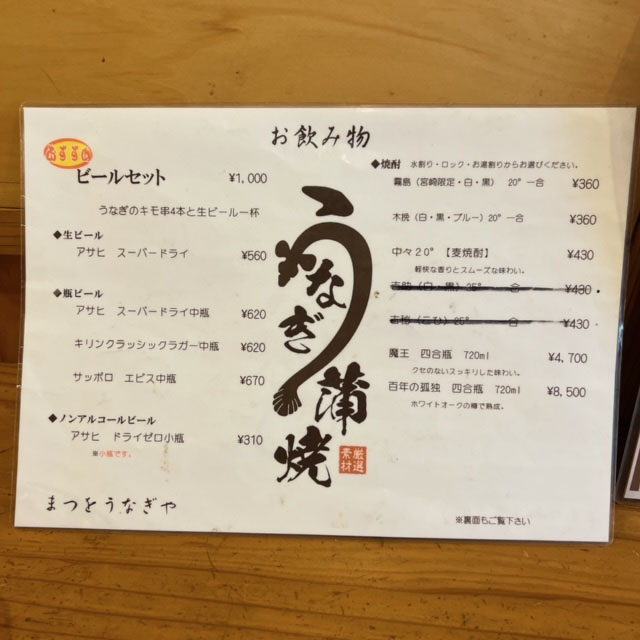 お飲み物
おすすめ
ビールセット ¥1,000
うなぎのキモ串4本と生ビール一杯
◆生ビール
アサヒ スーパードライ ¥560
◆瓶ビール
アサヒ スーパードライ中瓶 ¥620
キリンクラッシックラガー中瓶 ¥620
サッポロ エビス中瓶 ¥670
◆ノンアルコールビール
アサヒ ドライゼロ小瓶 ¥310
※小瓶です。
まつをうなぎや
うなぎ
蒲焼
厳選
素材
◆焼酎 水割り・ロック・お湯割りからお選びください。
霧島（宮崎限定・白・黒） 20°一合 ¥360
木挽（白・黒・ブルー）20°一合 ¥360
中々20°【麦焼酎】 ¥430
軽快な香りとスムーズな味わい。
（白・黒）25° 一合 ¥430
25° 合 ¥430
魔王 四合瓶 720ml ¥4,700
クセのないスッキリした味わい。
百年の孤独 四合瓶 720ml ¥8,500
ホワイトオークの樽で熟成。
※裏面もご覧下さい